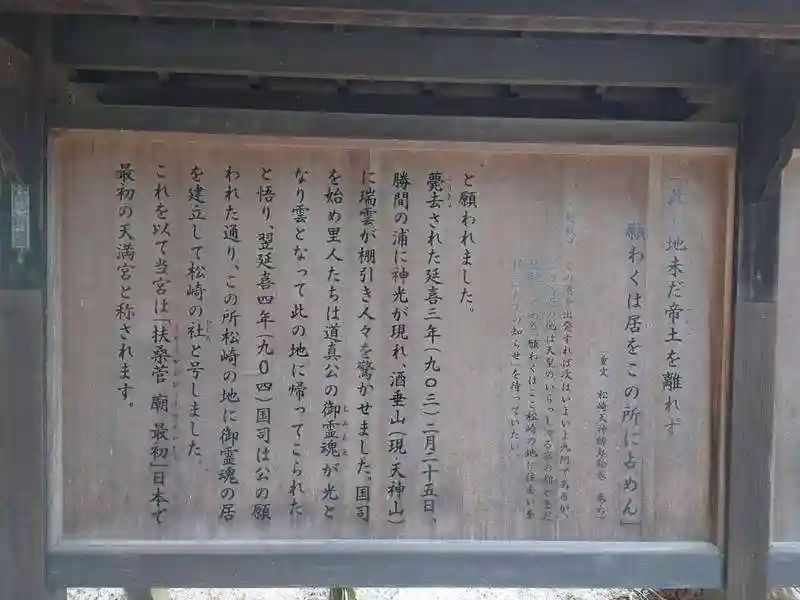 「此ノ地未だ帝土を離れず
願わくは居をこの所に占めん」
(重文 松崎天神縁起絵巻 巻六)
この港を出発すれば次はいよいよ九州であるが、
この の地は天皇のいらっしゃる京の都とまだ
である。願わくはここ松崎の地に住まいを
の知らせを待っていたい。
と願われました。
薨去された延喜三年(九〇三)二月二十五日、
勝間の浦に神光が現れ、酒垂山(現、天神山)
に瑞雲が棚引き人々を驚かせました。国司
を始め里人たちは道真公の御霊魂が光と
なり雲となって此の地に帰ってこられた
と悟り、翌延喜四年(九〇四)国司は公の願
われた通り、この所松崎の地に御霊魂の居
を建立して松崎の社と号しました。
これを以て当宮は「扶桑菅廟最初」日本で
最初の天満宮と称されます。